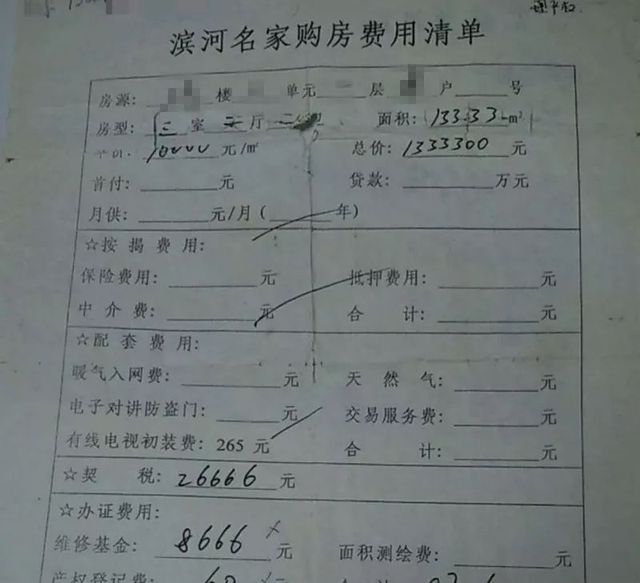 滨河名家购房费用清单
房源: 楼 单元 层 户 号
房型: 三 室 厅 面积: 133.33 m²
10000 元/㎡ 总价: 1333300 元
首付: 元 贷款: 万元
月供: 元/月( 年)
☆按揭费用:
保险费用: 元 抵押费用: 元
中介费: 元 合计: 元
☆配套费用:
暖气入网费: 元 天然气: 元
电子对讲防盗门: 元 交易服务费: 元
有线电视初装费: 265 元 合计: 元
☆契税: 26666 元
☆办证费用:
维修基金: 8666 元 面积测绘费: 元
产权登记费